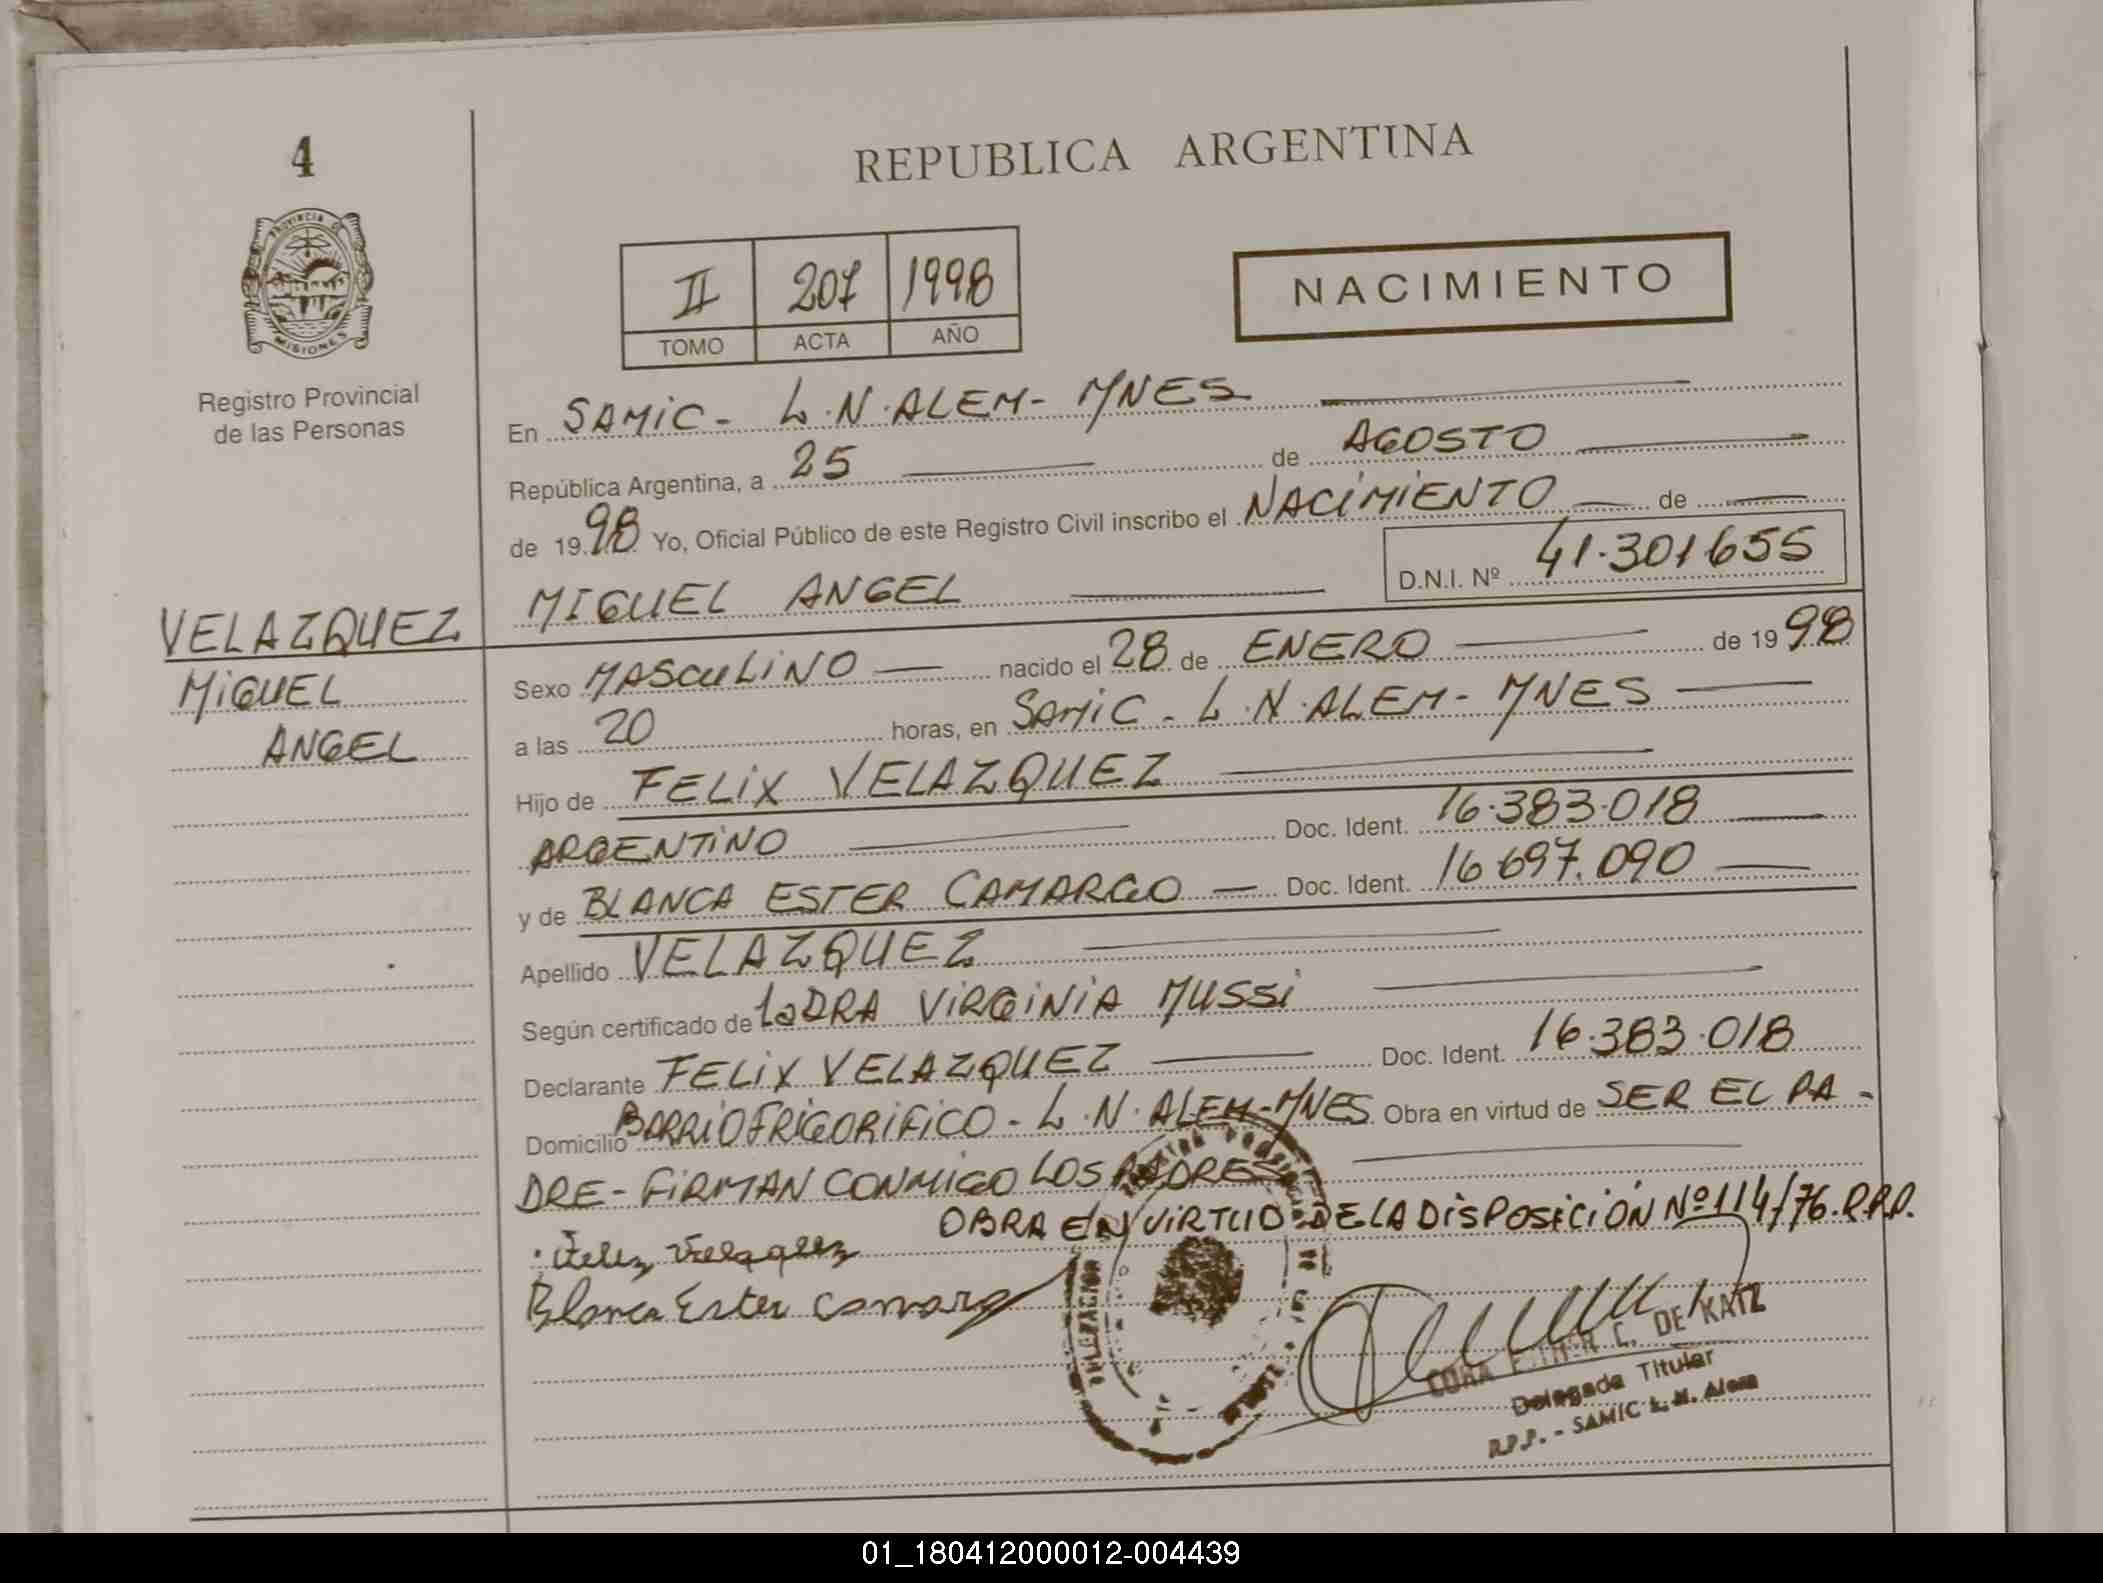 4
PROVINCIA DE
MISIONES
Registro Provincial
de las Personas
VELAZQUEZ
MIGUEL
ANGEL
REPUBLICA ARGENTINA
II 207 1998
TOMO ACTA AÑO
NACIMIENTO
En SAMIC - L.N.ALEM - MNES
República Argentina, a 25 de AGOSTO
de 1998 Yo, Oficial Público de este Registro Civil inscribo el NACIMIENTO de
MIGUEL ANGEL D.N.I. Nº 41.301655
Sexo MASCULINO nacido el 28 de ENERO de 1998
a las 20 horas, en SAMIC - L.N.ALEM - MNES
Hijo de FELIX VELAZQUEZ
ARGENTINO Doc. Ident. 16.383.018
y de BLANCA ESTER CAMARGO Doc. Ident. 16.697.090
Apellido VELAZQUEZ
Según certificado de la DRA VIRGINIA MUSSI
Declarante FELIX VELAZQUEZ Doc. Ident. 16.383.018
Domicilio BARRIO FRIGORIFICO - L.N.ALEM-MNES Obra en virtud de SER EL PA-
DRE - FIRMAN CONMIGO LOS PADRES
OBRA EN VIRTUD DE LA DISPOSICIÓN Nº 114/76. R.P.P.
Felix Velazquez
Blanca Ester Camargo
DELEGACION
CORA ESTHER C. DE KATZ
Delegada Titular
R.P.P. - SAMIC L. N. Alem
01_180412000012-004439